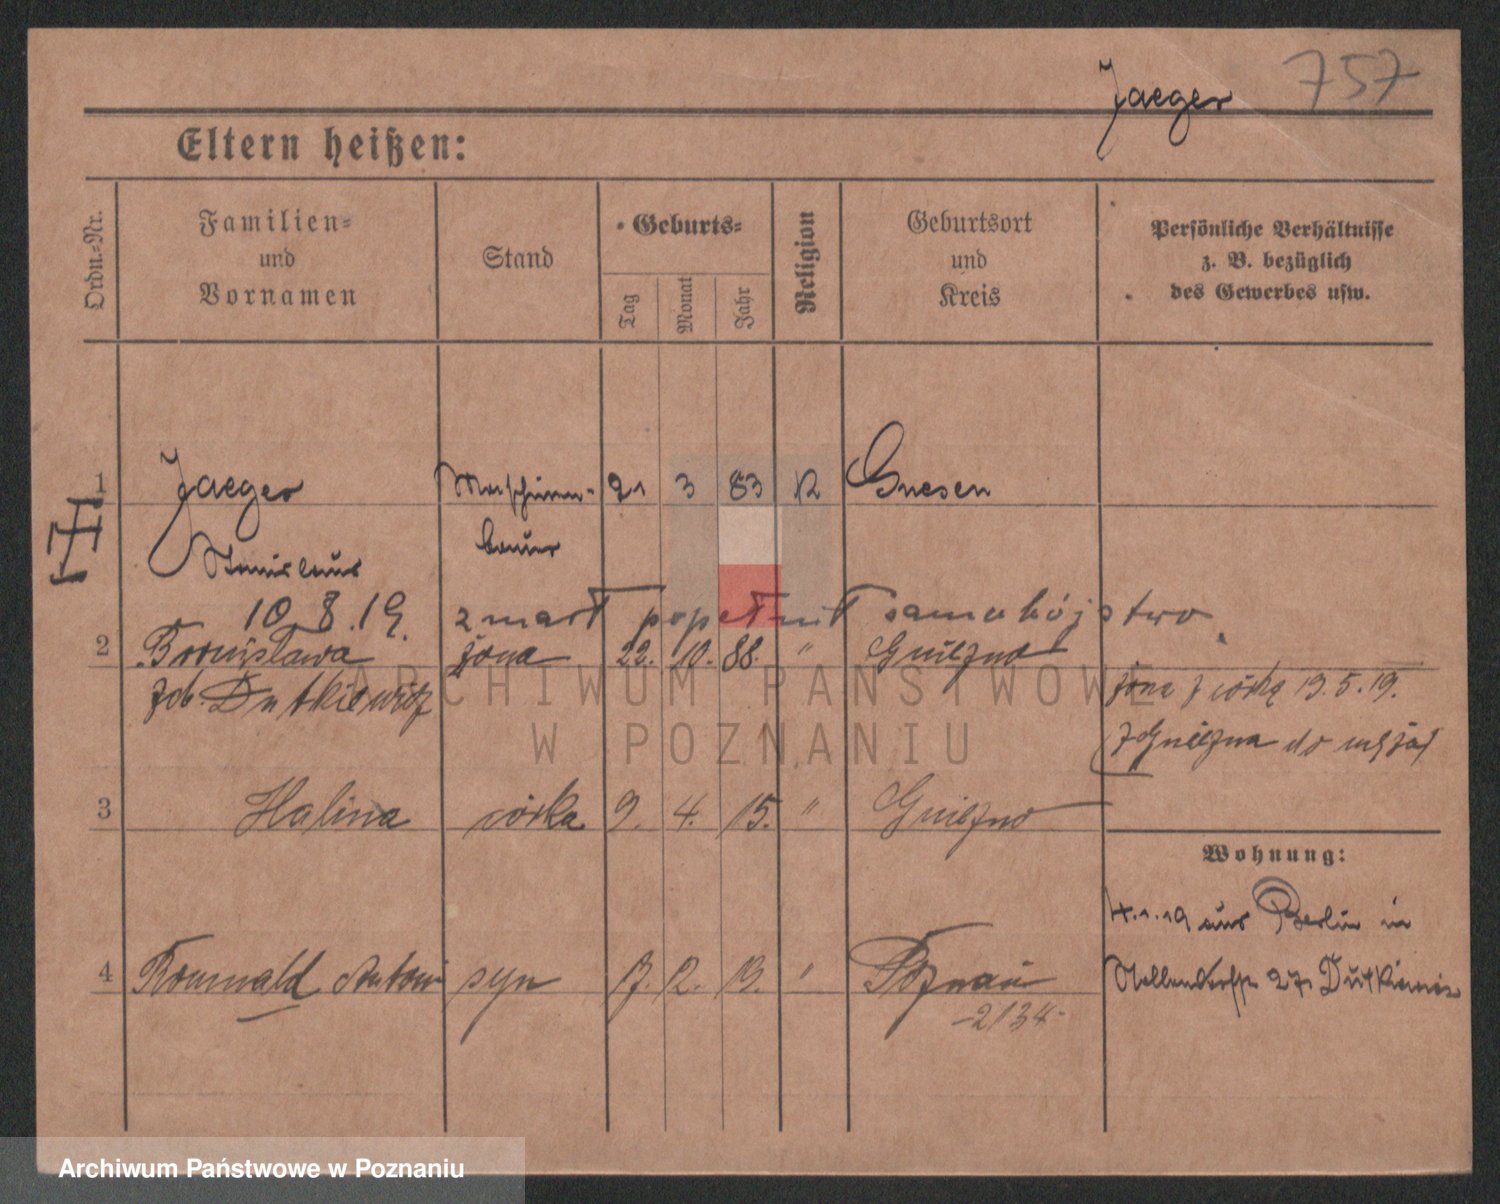 757
Jaeger
Eltern heißen:
Ordn.-Nr.
Familien-
und
Vornamen
Stand
Geburts-
Tag
Monat
Jahr
Religion
Geburtsort
und
Kreis
Persönliche Verhältnisse
z. B. bezüglich
des Gewerbes usw.
1 Jaeger Maschinen- 21 3 83 K Gnesen
Stanislaus bauer
10.8.19. zmarł popełnił samobójstwo.
2 Bronisława żona 22. 10. 88. " Gniezno
żona z córką 19.5.19.
z Gniezna do
3 Halina córka 9. 4. 15. " Gniezno
Wohnung:
4.1.19 aus Berlin in
4 Romuald Antoni syn 17. 12. 19. " Poznań
27
-2134-
ARCHIWUM PAŃSTWOWE
W POZNANIU
Archiwum Państwowe w Poznaniu